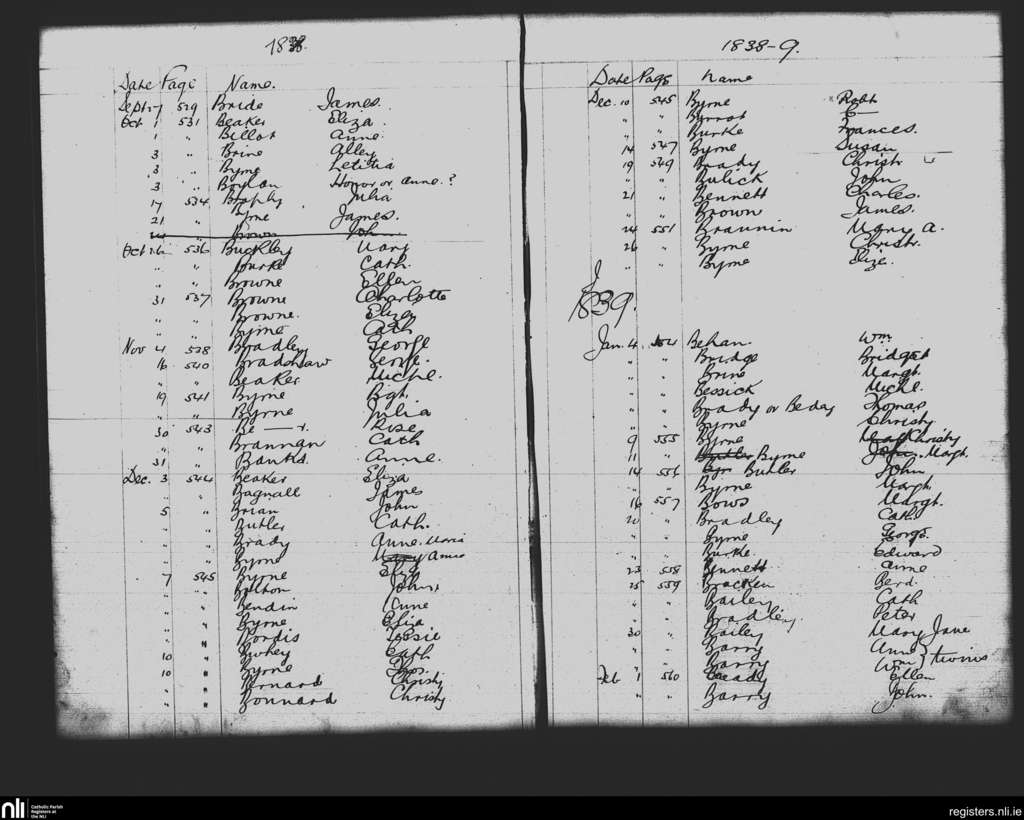 1838.
Date Page Name.
Sept 27 529 Bride James.
Oct 1 531 Beaker Eliza.
1 " Billot Anne.
3 " Brine Alley
3 " Byrne Letitia
3 " Boylan Honor or Anne.?
17 534 Brophy Julia
21 " Byrne James.
Brown John
Oct 26 536 Buckley Mary
" " Bourke Cath.
" " Browne Ellen
31 537 Browne Charlotte
" " Browne. Eliza
" " Byrne Cath
Nov 4 538 Bradley George
16 540 Bradshaw George.
" " Beaker Michl.
19 541 Byrne Bgt.
" " Byrne Julia
30 543 Be — r. Rose
" " Brannan Cath
31 " Banks. Anne.
Dec. 3 544 Beaker Eliza
" " Bagnall James
5 " Brian John
" " Butler Cath.
" " Brady Anne. Maria
" " Byrne Mary Anne
7 545 Byrne Eliz
" " Bolton John
" " Bendin Anne
" " Byrne Eliza
" " Bordis Rosie
10 " Burkey Cath
10 " Byrne Thos.
" " Bernard Christy
" " Bonnard Christy
1838-9.
Date Page Name
Dec. 10 545 Byrne Robt
" " Byrrot
" " Burke Frances.
14 547 Byrne Susan
19 549 Brady Christr
" " Bulick John
21 " Bennett Charles.
" " Brown James.
24 551 Braunin Mary A.
26 " Byrne Christr.
" " Byrne Elize.
1839.
Jan. 4. 554 Behan. Wm
" " Bridge Bridget
" " Brine Margt.
" " Bessick Michl.
" " Brady or Beday Thomas
" " Byrne Christy
9 555 Byrne Christy
11 " Butler Byrne John. Margt.
14 556 Byr Butler John
" " Byrne Margt
16 557 Bows Margt.
20 " Bradley Cath
" " Byrne George.
" " Burke Edward
23 558 Bennett Anne
25 559 Bracken Berd.
" " Bailey Cath
" " Bradley. Peter
30 " Bailey Mary Jane
" " Barry Ann } twins
" " Barry Wm
Feb 1 560 Beady Ellen
" " Barry John.
nli Catholic Parish Registers at the NLI
registers.nli.ie